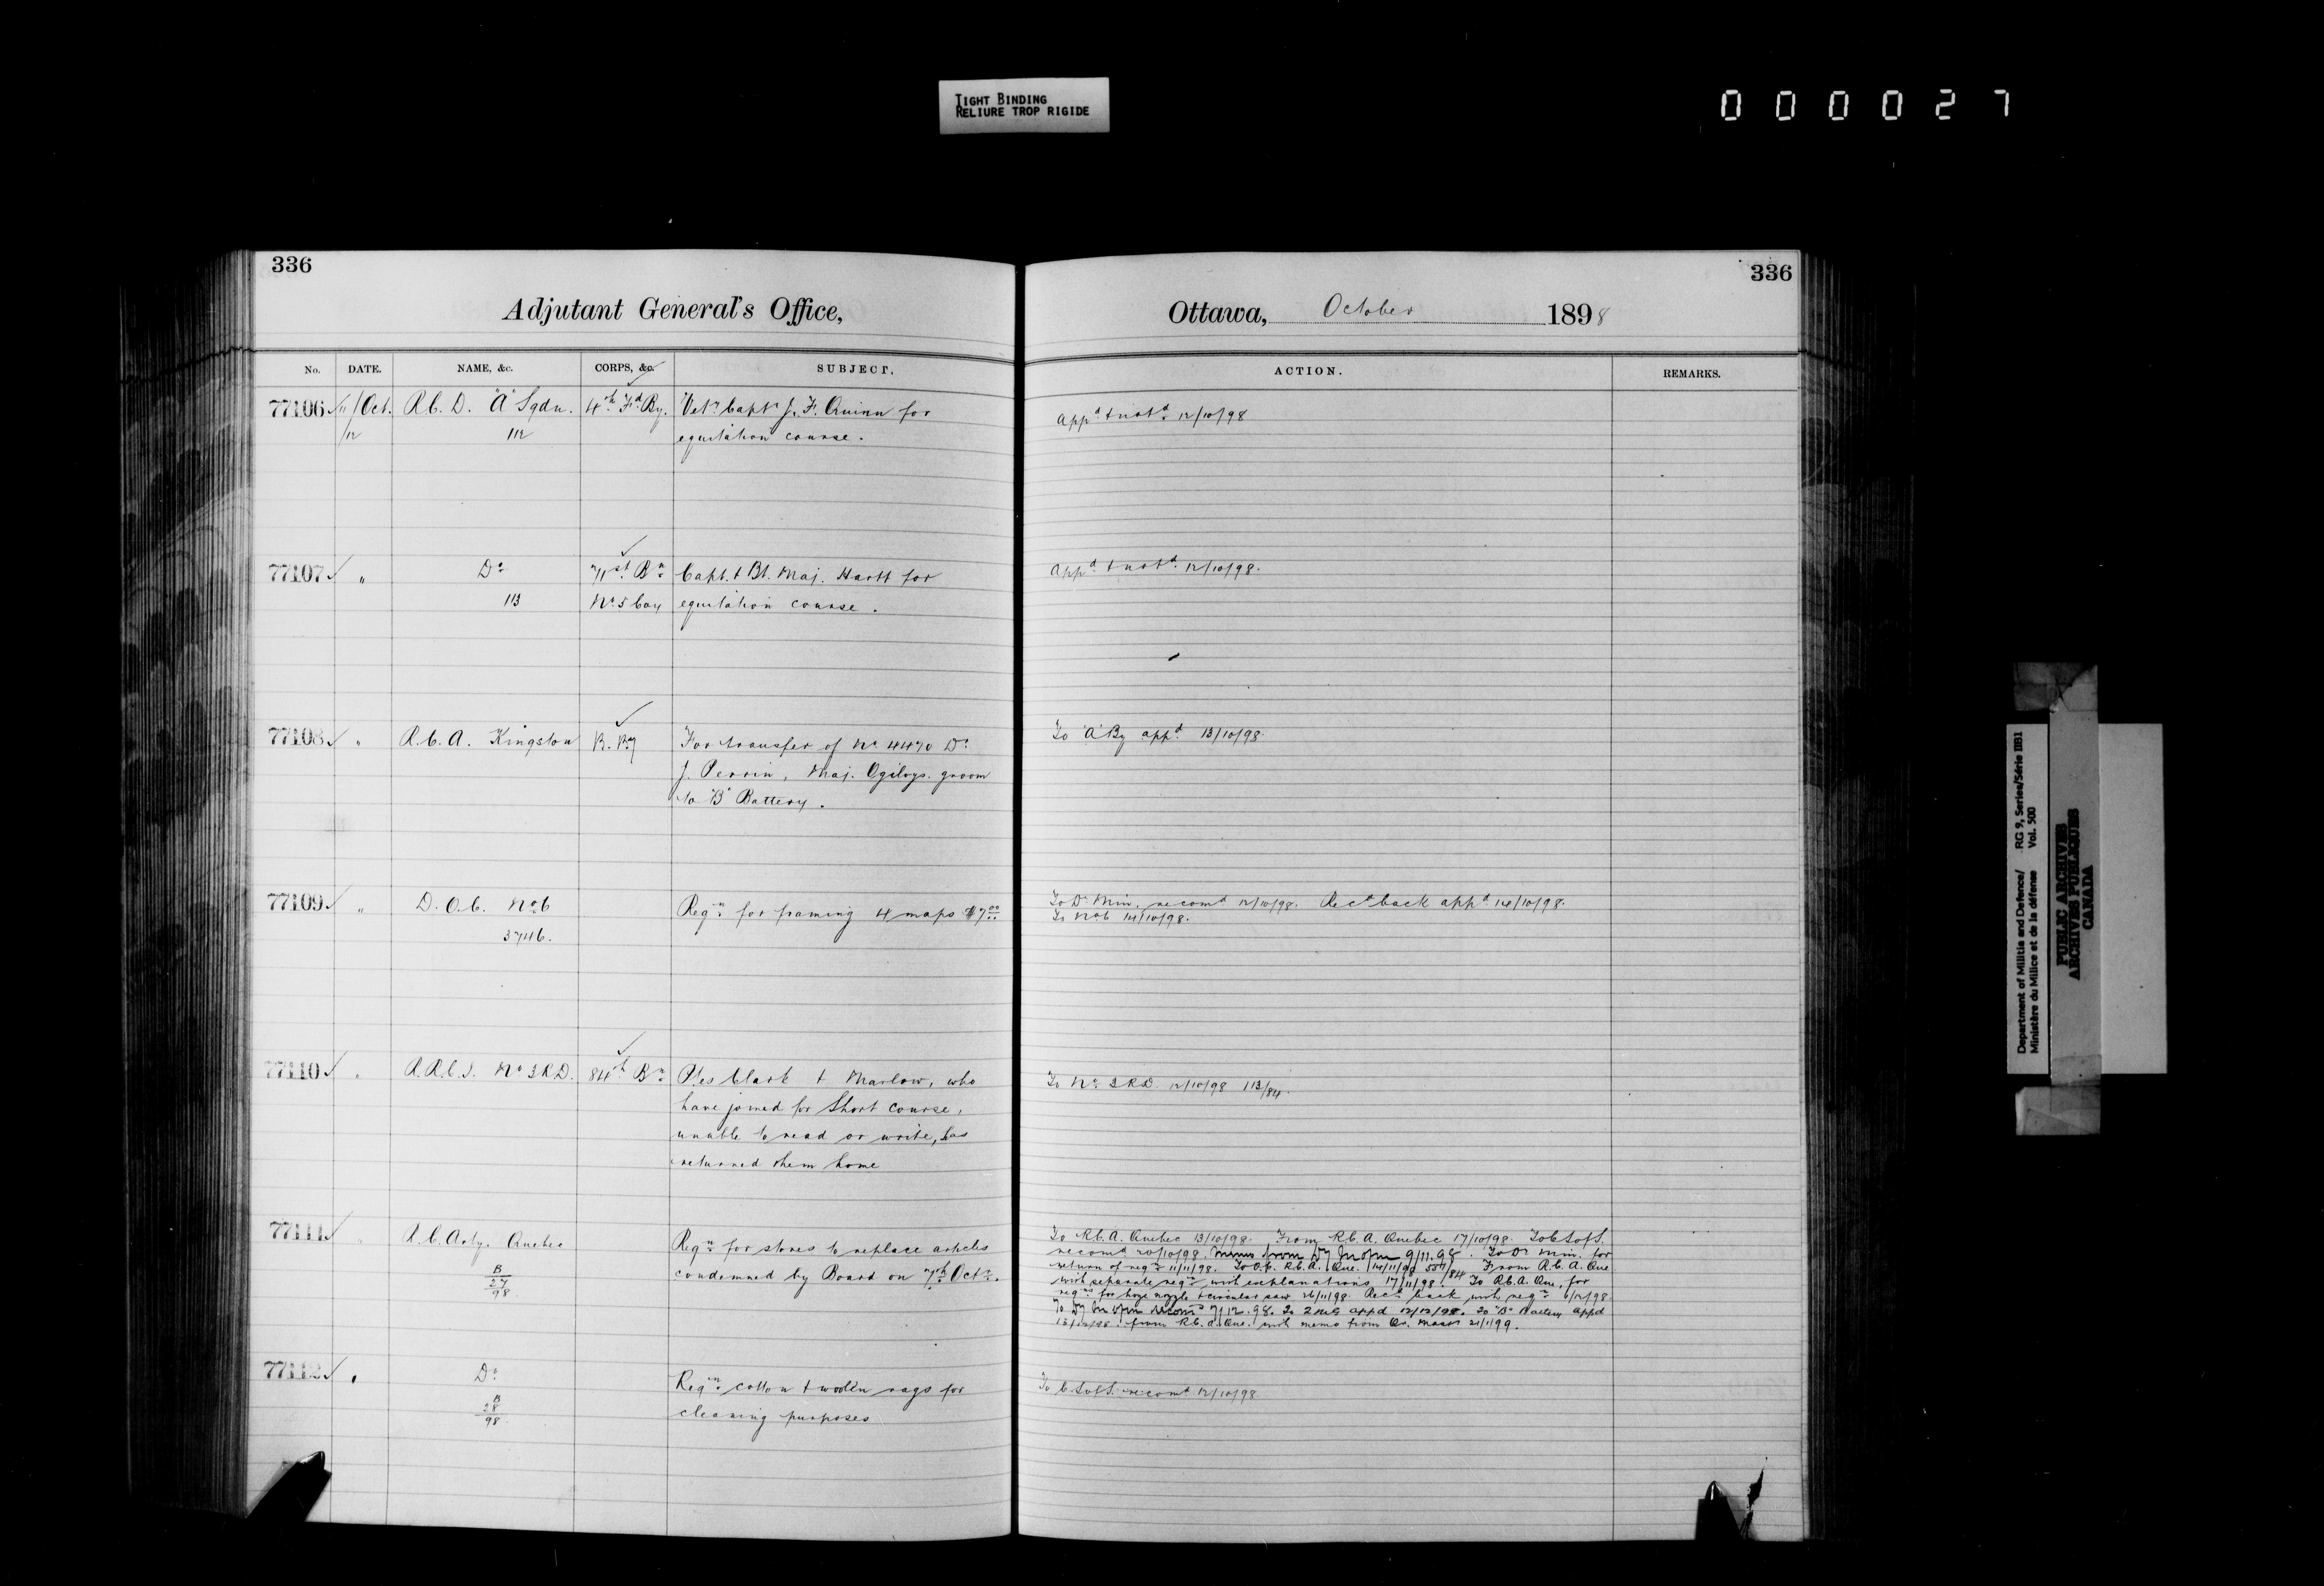 TIGHT BINDING
RELIURE TROP RIGIDE
000027
336
Adjutant General's Office,
No. DATE. NAME, &c. CORPS, &c. SUBJECT.
77106 11/Oct. R.C.D. "A" Sqdn. 4th Fd By. Vety Capt J. F. Quinn for
/12 112 equitation course.
77107 " Do 71st Bn Capt. & Bt. Maj. Hartt for
113 No 5 Coy equitation course.
77108 " R.C.A. Kingston For transfer of No 4470 Dr
J. Perrin, Maj. Ogilvys. groom
to "B" Battery.
77109 " D.O.C. No 6 Reqn for framing 4 maps $7.00
3746.
77110 " R.R.C.I. No 3 R.D. 84th Bn Ptes Clark & Marlow, who
have joined for Short Course,
unable to read or write, has
returned them home
77111 " R.C.Arty. Quebec Reqn for stores to replace articles
B
27
98
condemned by Board on 7th Oct.
77112 " Do Reqn cotton & woollen rags for
B
28
98
cleaning purposes
336
Ottawa, October 1898
ACTION. REMARKS.
Appd & notd 12/10/98
Appd & notd 12/10/98.
To "A" By appd 13/10/98.
To D. Min. recomd 12/10/98. Recd back appd 14/10/98.
To No 6 14/10/98.
To No 3 R.D. 12/10/98 113/84.
To R.C.A. Quebec 13/10/98. From R.C.A. Quebec 17/10/98. To C.S. of S.
recomd 20/10/98. from 9/11.98. To D. Min. for
return of reqn 11/11/98. To O.C. R.C.A. Que. 14/11/98 From R.C.A. Que
with separate reqn with explanations 17/11/98. To R.C.A. Que, for
reqns for hose nozzle & circular saw 26/11/98. Recd back with reqn 6/12/98.
recomd 7/12.98. appd 12/12/98. To "B" Battery appd
13/12/98. from R.C.A. Que. with memo from Qr. Mastr 21/1/99.
To C.S. of S. recomd 12/10/98
Department of Militia and Defence/
Ministère du Milice et de la défense
RG 9, Series/Série IIB1
Vol. 500
PUBLIC ARCHIVES
ARCHIVES PUBLIQUES
CANADA